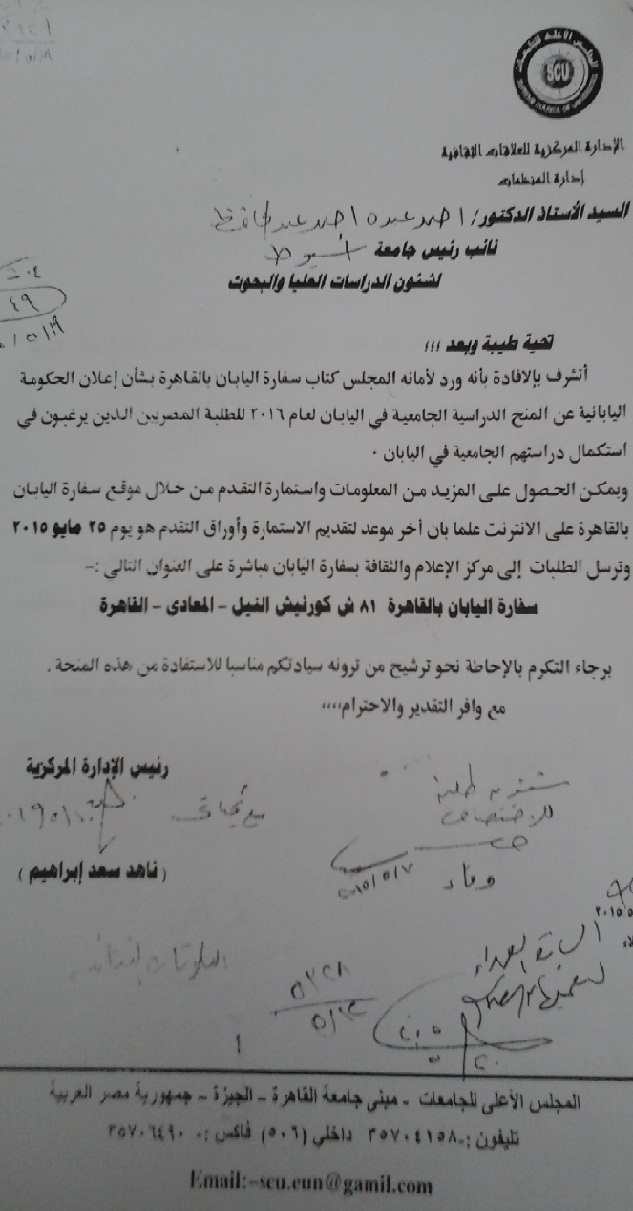 SCU
الإدارة المركزية للعلاقات الثقافية
إدارة المنظمات
السيد الأستاذ الدكتور/ احمد عبده احمد عبد الحافظ
نائب رئيس جامعة أسيوط
لشئون الدراسات العليا والبحوث
تحية طيبة وبعد ،،،
أتشرف بالافادة بأنه ورد لأمانه المجلس كتاب سفارة اليابان بالقاهرة بشأن إعلان الحكومة
اليابانية عن المنح الدراسية الجامعية في اليابان لعام ٢٠١٦ للطلبة المصريين الذين يرغبون في
استكمال دراستهم الجامعية في اليابان .
ويمكن الحصول على المزيد من المعلومات واستمارة التقدم من خلال موقع سفارة اليابان
بالقاهرة على الانترنت علما بان أخر موعد لتقديم الاستمارة وأوراق التقدم هو يوم ٢٥ مايو ٢٠١٥
وترسل الطلبات إلى مركز الإعلام والثقافة بسفارة اليابان مباشرة على العنوان التالي :-
سفارة اليابان بالقاهرة ٨١ ش كورنيش النيل - المعادى - القاهرة
برجاء التكرم بالإحاطة نحو ترشيح من ترونه سيادتكم مناسبا للاستفادة من هذه المنحة .
مع وافر التقدير والاحترام،،،،
رئيس الإدارة المركزية
(ناهد سعد إبراهيم)
٥٣٢٨
المجلس الأعلى للجامعات - مبنى جامعة القاهرة - الجيزة - جمهورية مصر العربية
تليفون :- ٣٥٧٠٤١٥٨ داخلي (٥٠٦) فاكس :- ٣٥٧٠٦٤٩٠
Email:-scu.eun@gamil.com